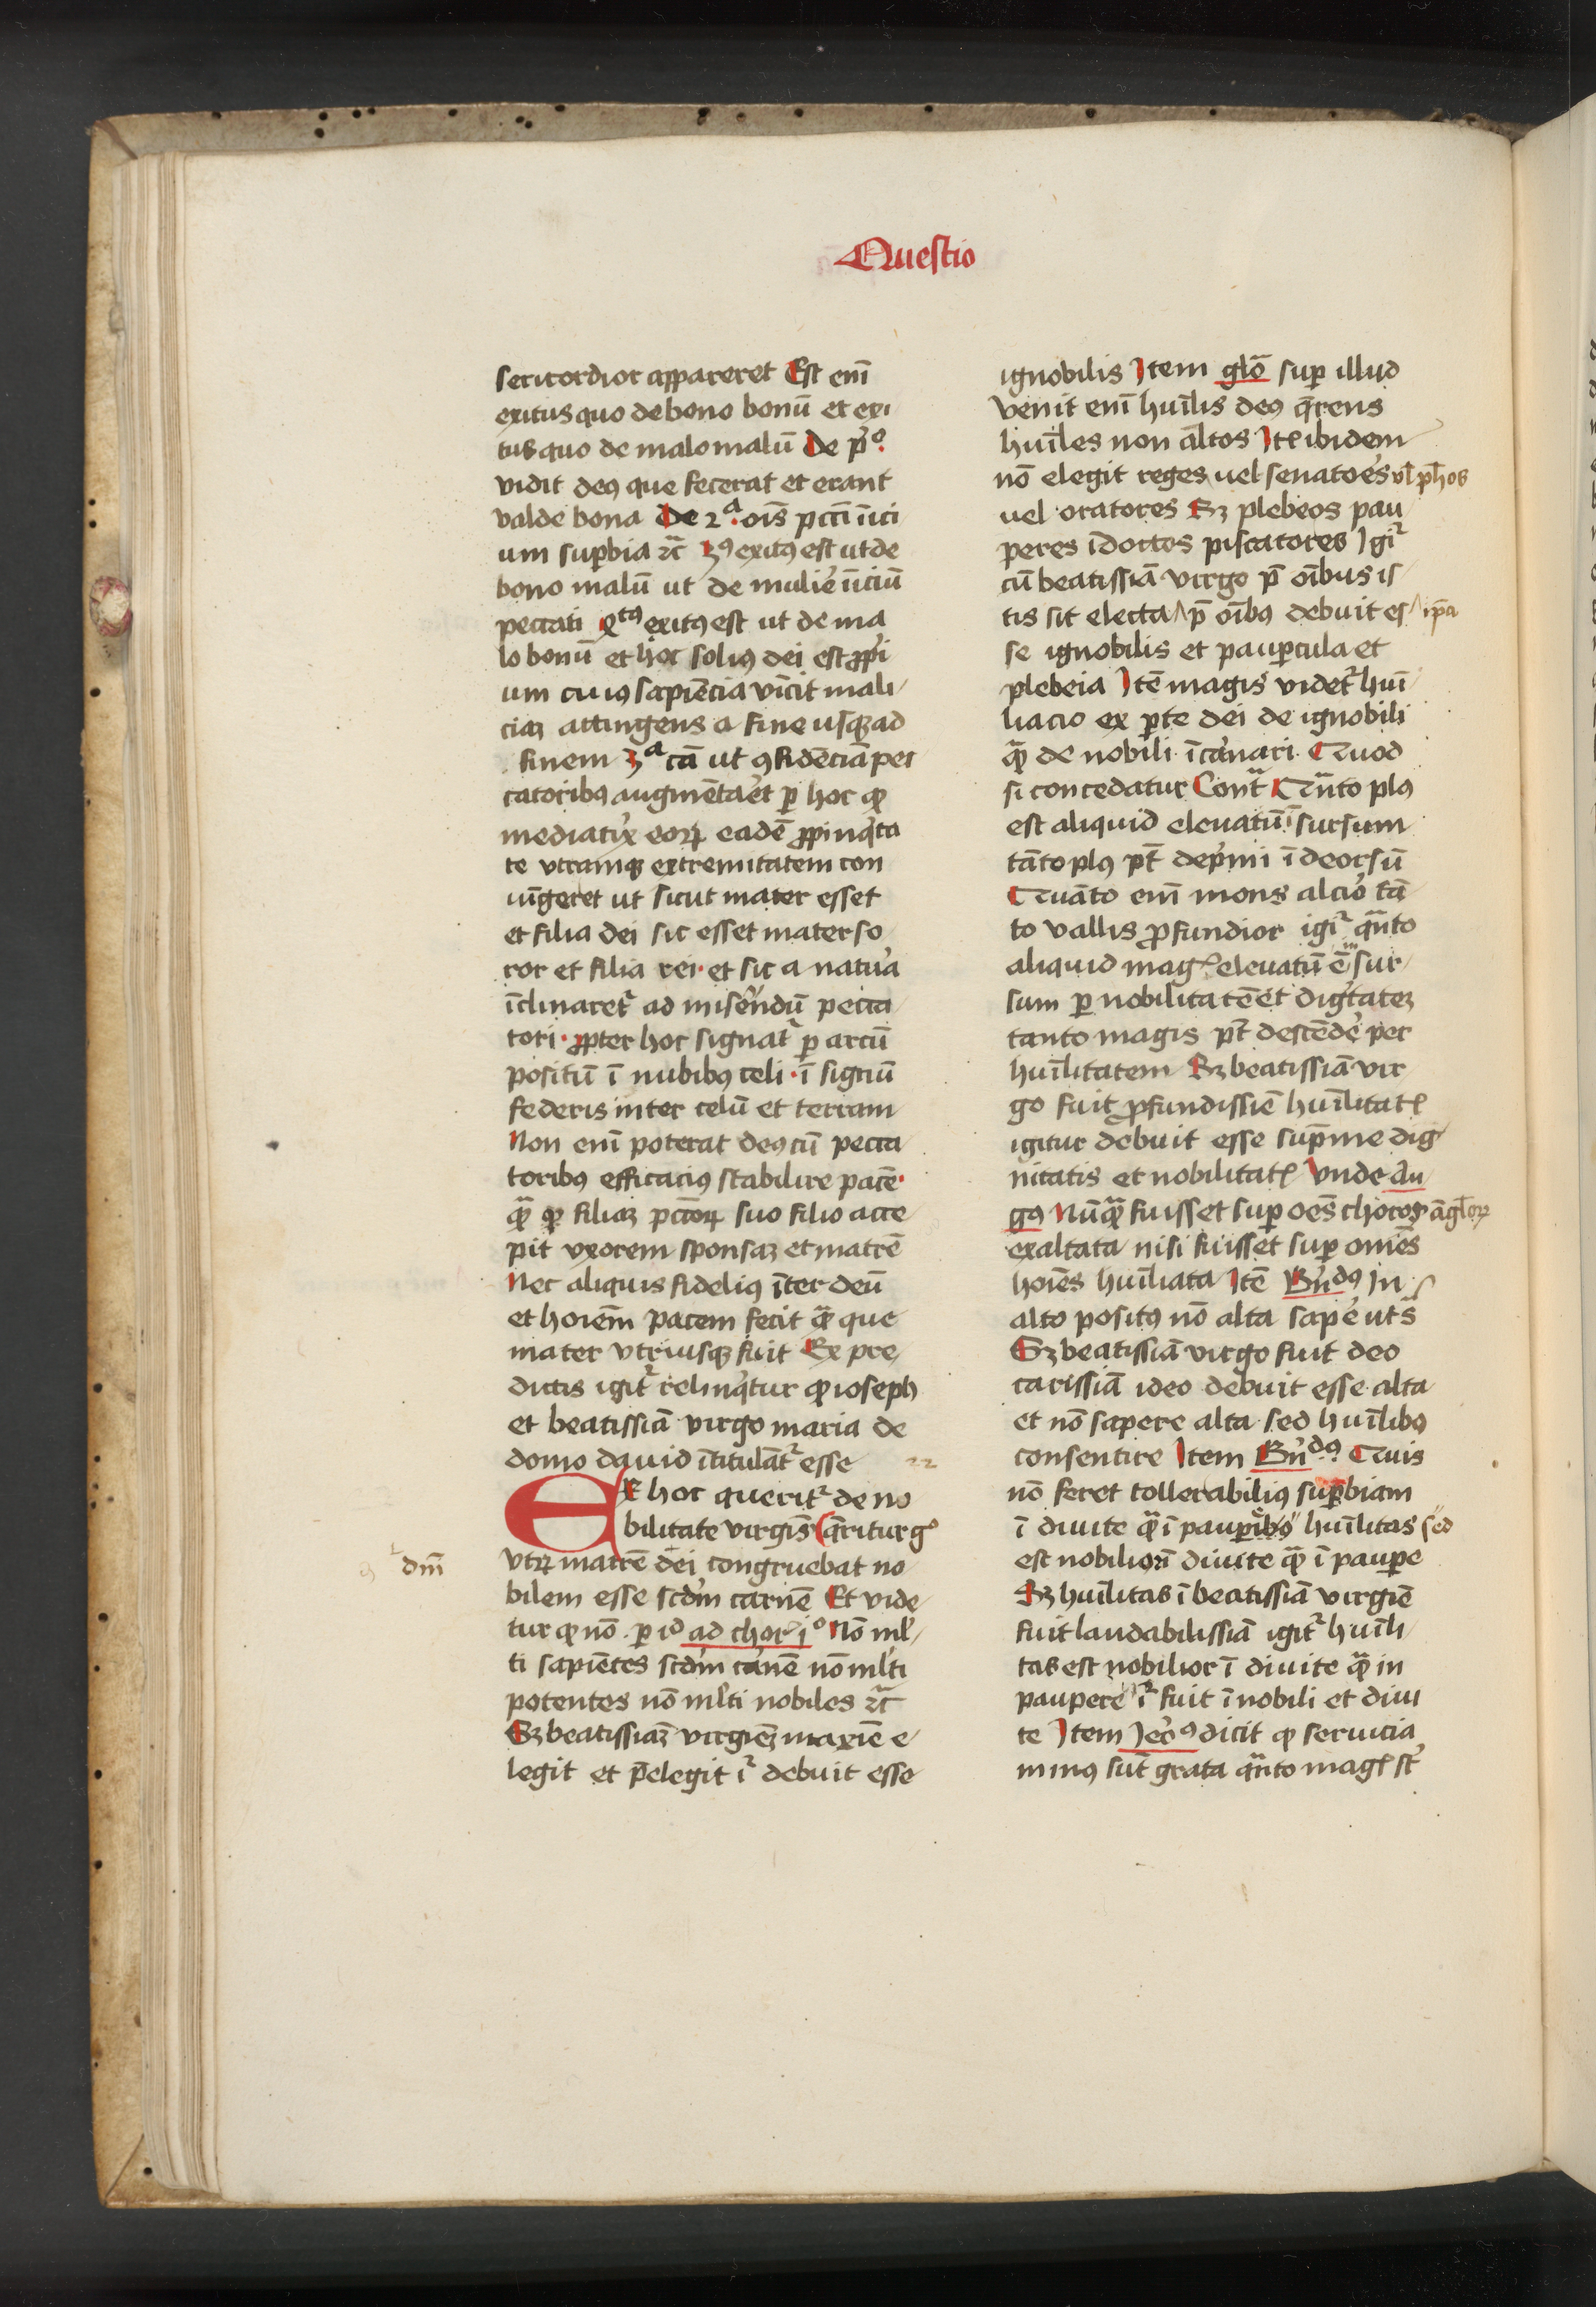 Questio
sericordior appareret Est eni̅
exitus quo de bono bonu̅ et exi
tus quo de malo malu̅ De pͦ
vidit deꝰ que fecerat et erant
valde bona De 2ᵃ ois̅ pcci̅ i̅ici
um suꝑbia ⁊c̅ 3ꝰ exitꝰ est ut de
bono malu̅ ut de mulie̅ i̅iciu̅
peccati 4tꝰ exitꝰ est ut de ma
lo bonu̅ et hoc soliꝰ dei est ꝓpi
um cuiꝰ sapie̅cia vi̅cit mali
ciaꝫ attingens a fine usqꝫ ad
finem 3ᵃ ca̅ ut ꝯfide̅cia̅ pec
catoribꝰ augme̅taret ꝑ hoc ꝙ
mediatix eoꝝ eade̅ ꝓpinq̅ta
te utramqꝫ extremitatem con
iu̅geret ut sicut mater esset
et filia dei sic esset mater so
ror et filia rei et sic a natura
i̅clinaret᷑ ad misere̅du̅ pecca
tori ꝓpter hoc signat᷑ ꝑ arcu̅
positu̅ i̅ nubibꝰ celi i̅ signu̅
federis inter celu̅ et terram
Non eni̅ poterat deꝰ cu̅ pecca
toribꝰ efficaciꝰ stabilire pace̅
qͣ̅ ꝙ filiaꝫ pcc̅oꝝ suo filio acce
pit uxorem sponsaꝫ et matre̅
Nec aliquis fideliꝰ i̅ter deu̅
et hoiem̅ pacem fecit qͣ̅ que
mater utriusqꝫ fuit Ex pre
dictis igit᷑ relinq̅tur ꝙ ioseph
et beatissia̅ virgo maria de
domo dauid i̅titula̅t᷑ esse 22
Ex hoc querit᷑ de no
bilitate virgis̅ q̅ritur gͦ
utꝝ matre̅ dei congruebat no
dm̅
bilem esse scdm̅ carne̅ Et vide
tur ꝙ no̅ ꝑ id̅ ad chor᷑ iͦ No̅ ml̅
ti sapie̅tes scdm̅ carne̅ no̅ ml̅ti
potentes no̅ ml̅ti nobiles ⁊c̅
Sꝫ beatissiaꝫ virgieꝫ maxie̅ e
legit et p̅elegit i᷑ debuit esse
ignobilis Item glo̅ suꝑ illud
venit eni̅ hui̅lis deꝰ q̅rens
hui̅les non altos Ite̅ ibidem
no̅ elegit reges uel senatoes̅ ul̅ ph̅os
uel oratores Sꝫ plebeos pau
peres i̅doctos piscatores Igi᷑
cu̅ beatissia̅ virgo p̅ oi̅bus is
tis sit electa p̅ oi̅bꝰ debuit es ip̅a
se ignobilis et pauꝑcula et
plebeia Ite̅ magis videt᷑ hui̅
liacio ex ꝑte dei de ignobili
qͣ̅ de nobili i̅carnari Quod
si concedatur Cont̅ Qua̅to plꝰ
est aliquid eleuatu̅ i̅ sursum
ta̅to plꝰ pt̅ dep̅mi i̅ deorsu̅
Qua̅to eni̅ mons alcior̅ ta̅
to vallis ꝓfundior igi᷑ qͣ̅nto
aliquid mag᷑ eleuatu̅ e̅ in sur
sum ꝑ nobilitate̅ et dig̅tateꝫ
tanto magis pt̅ desce̅de̅ per
hui̅litatem Sꝫ beatissia̅ vir
go fuit ꝓfundissie̅ hui̅litat᷑
igitur debuit esse sup̅me dig
nitatis et nobilitat᷑ Unde au
gꝰ Nu̅qͣ̅ fuisset suꝑ oe̅s choros a̅gl̅oꝝ
exaltata nisi fuisset suꝑ omes̅
hoies̅ hui̅liata Ite̅ Bn̅dꝰ In
alto positꝰ no̅ alta sape̅ uts̅
Sꝫ beatissia̅ virgo fuit deo
carissia̅ ideo debuit esse alta
et no̅ sapere alta sed hui̅libꝰ
consentire Item Bn̅dꝰ Quis
no̅ feret tollerabiliꝰ suꝑbiam
i̅ diuite qͣ̅ i̅ pauꝑibꝰ hui̅litas sed
est nobilior i̅ diuite qͣ̅ i̅ pauꝑe
Sꝫ hui̅litas i̅ beatissia̅ virgie̅
fuit laudabilissia̅ igit᷑ hui̅li
tas est nobilior i̅ diuite qͣ̅ in
paupere i᷑ fuit i̅ nobili et diui
te Item Ier̅ꝰ dicit ꝙ seruicia
minꝰ su̅t grata qͣ̅nto mag᷑ st̅